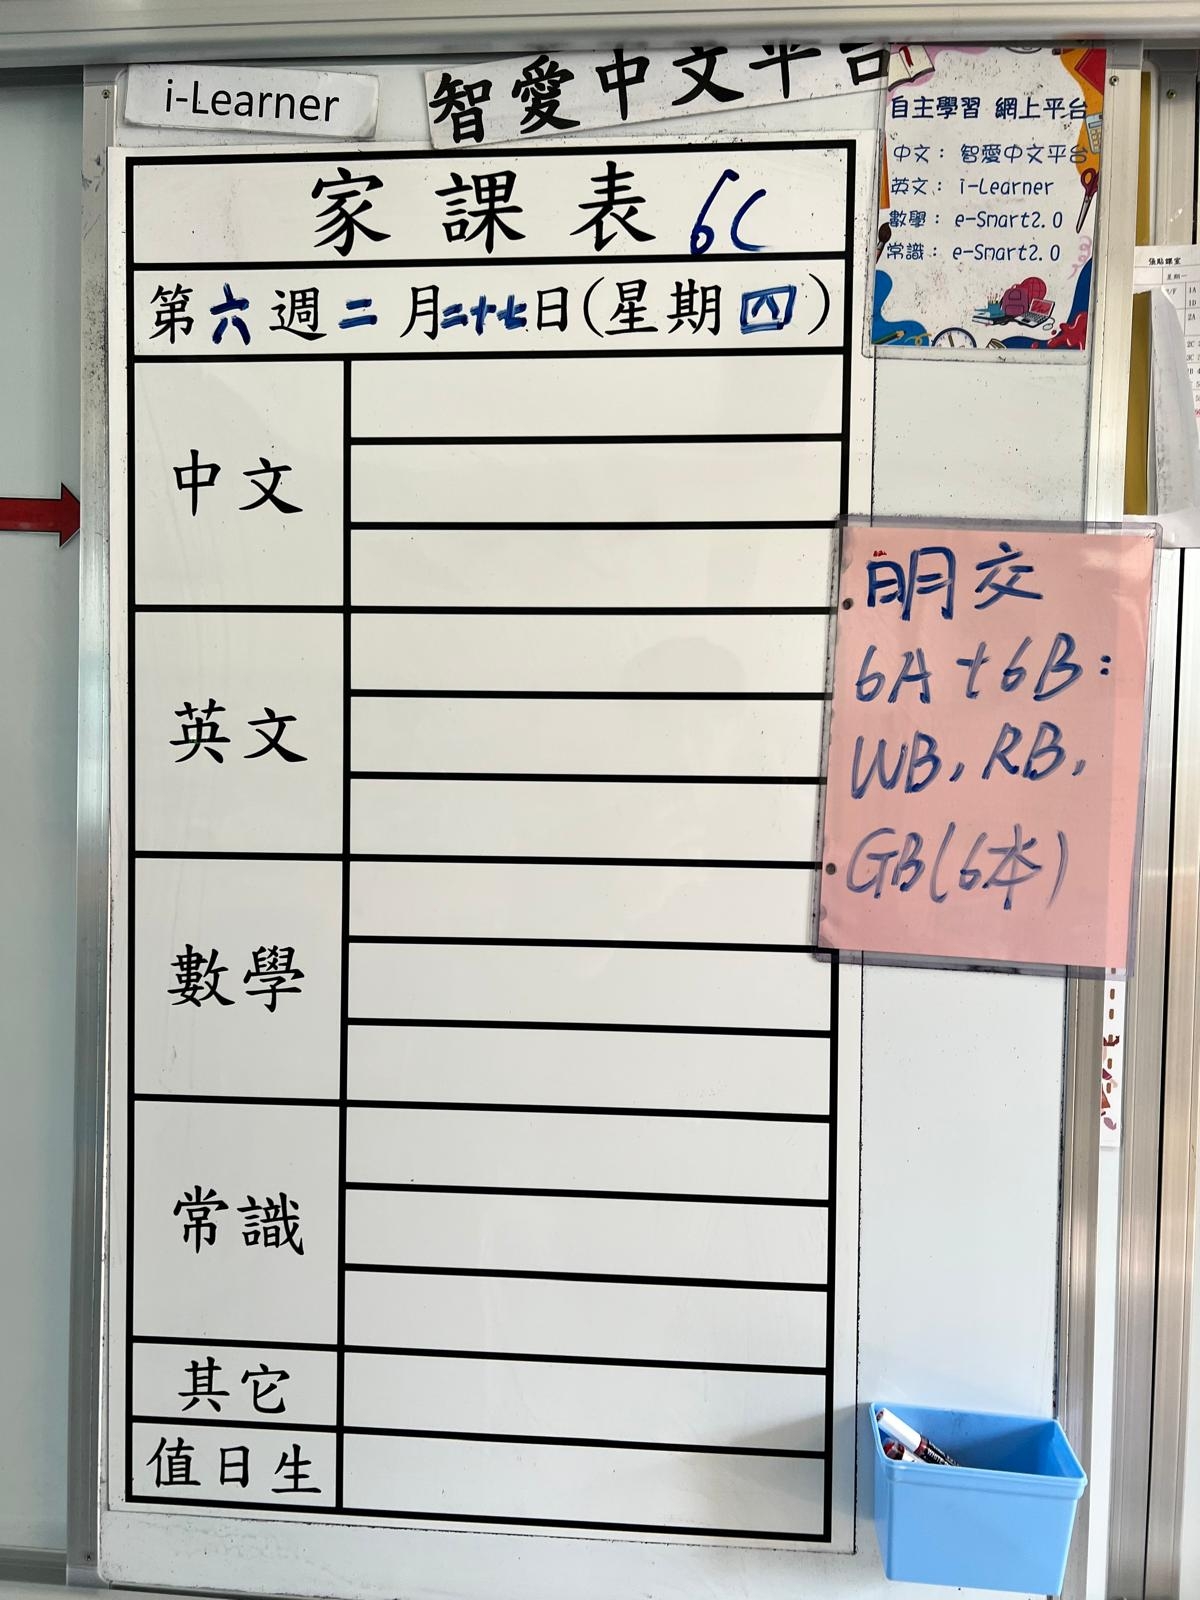 i-Learner
智愛中文平台
自主學習 網上平台
中文： 智愛中文平台
英文： i-Learner
數學： e-Smart2.0
常識： e-Smart2.0
家課表 6C
第六週二月二十七日(星期四)
中文
英文
數學
常識
其它
值日生
明交
6A+6B:
WB, RB,
GB(6本)
張貼課室
星期一
1A
1D
2A